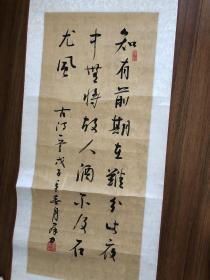 知有前期在難分此夜
中無將故人酒不及石
尤風
古詩一章戊子 春月